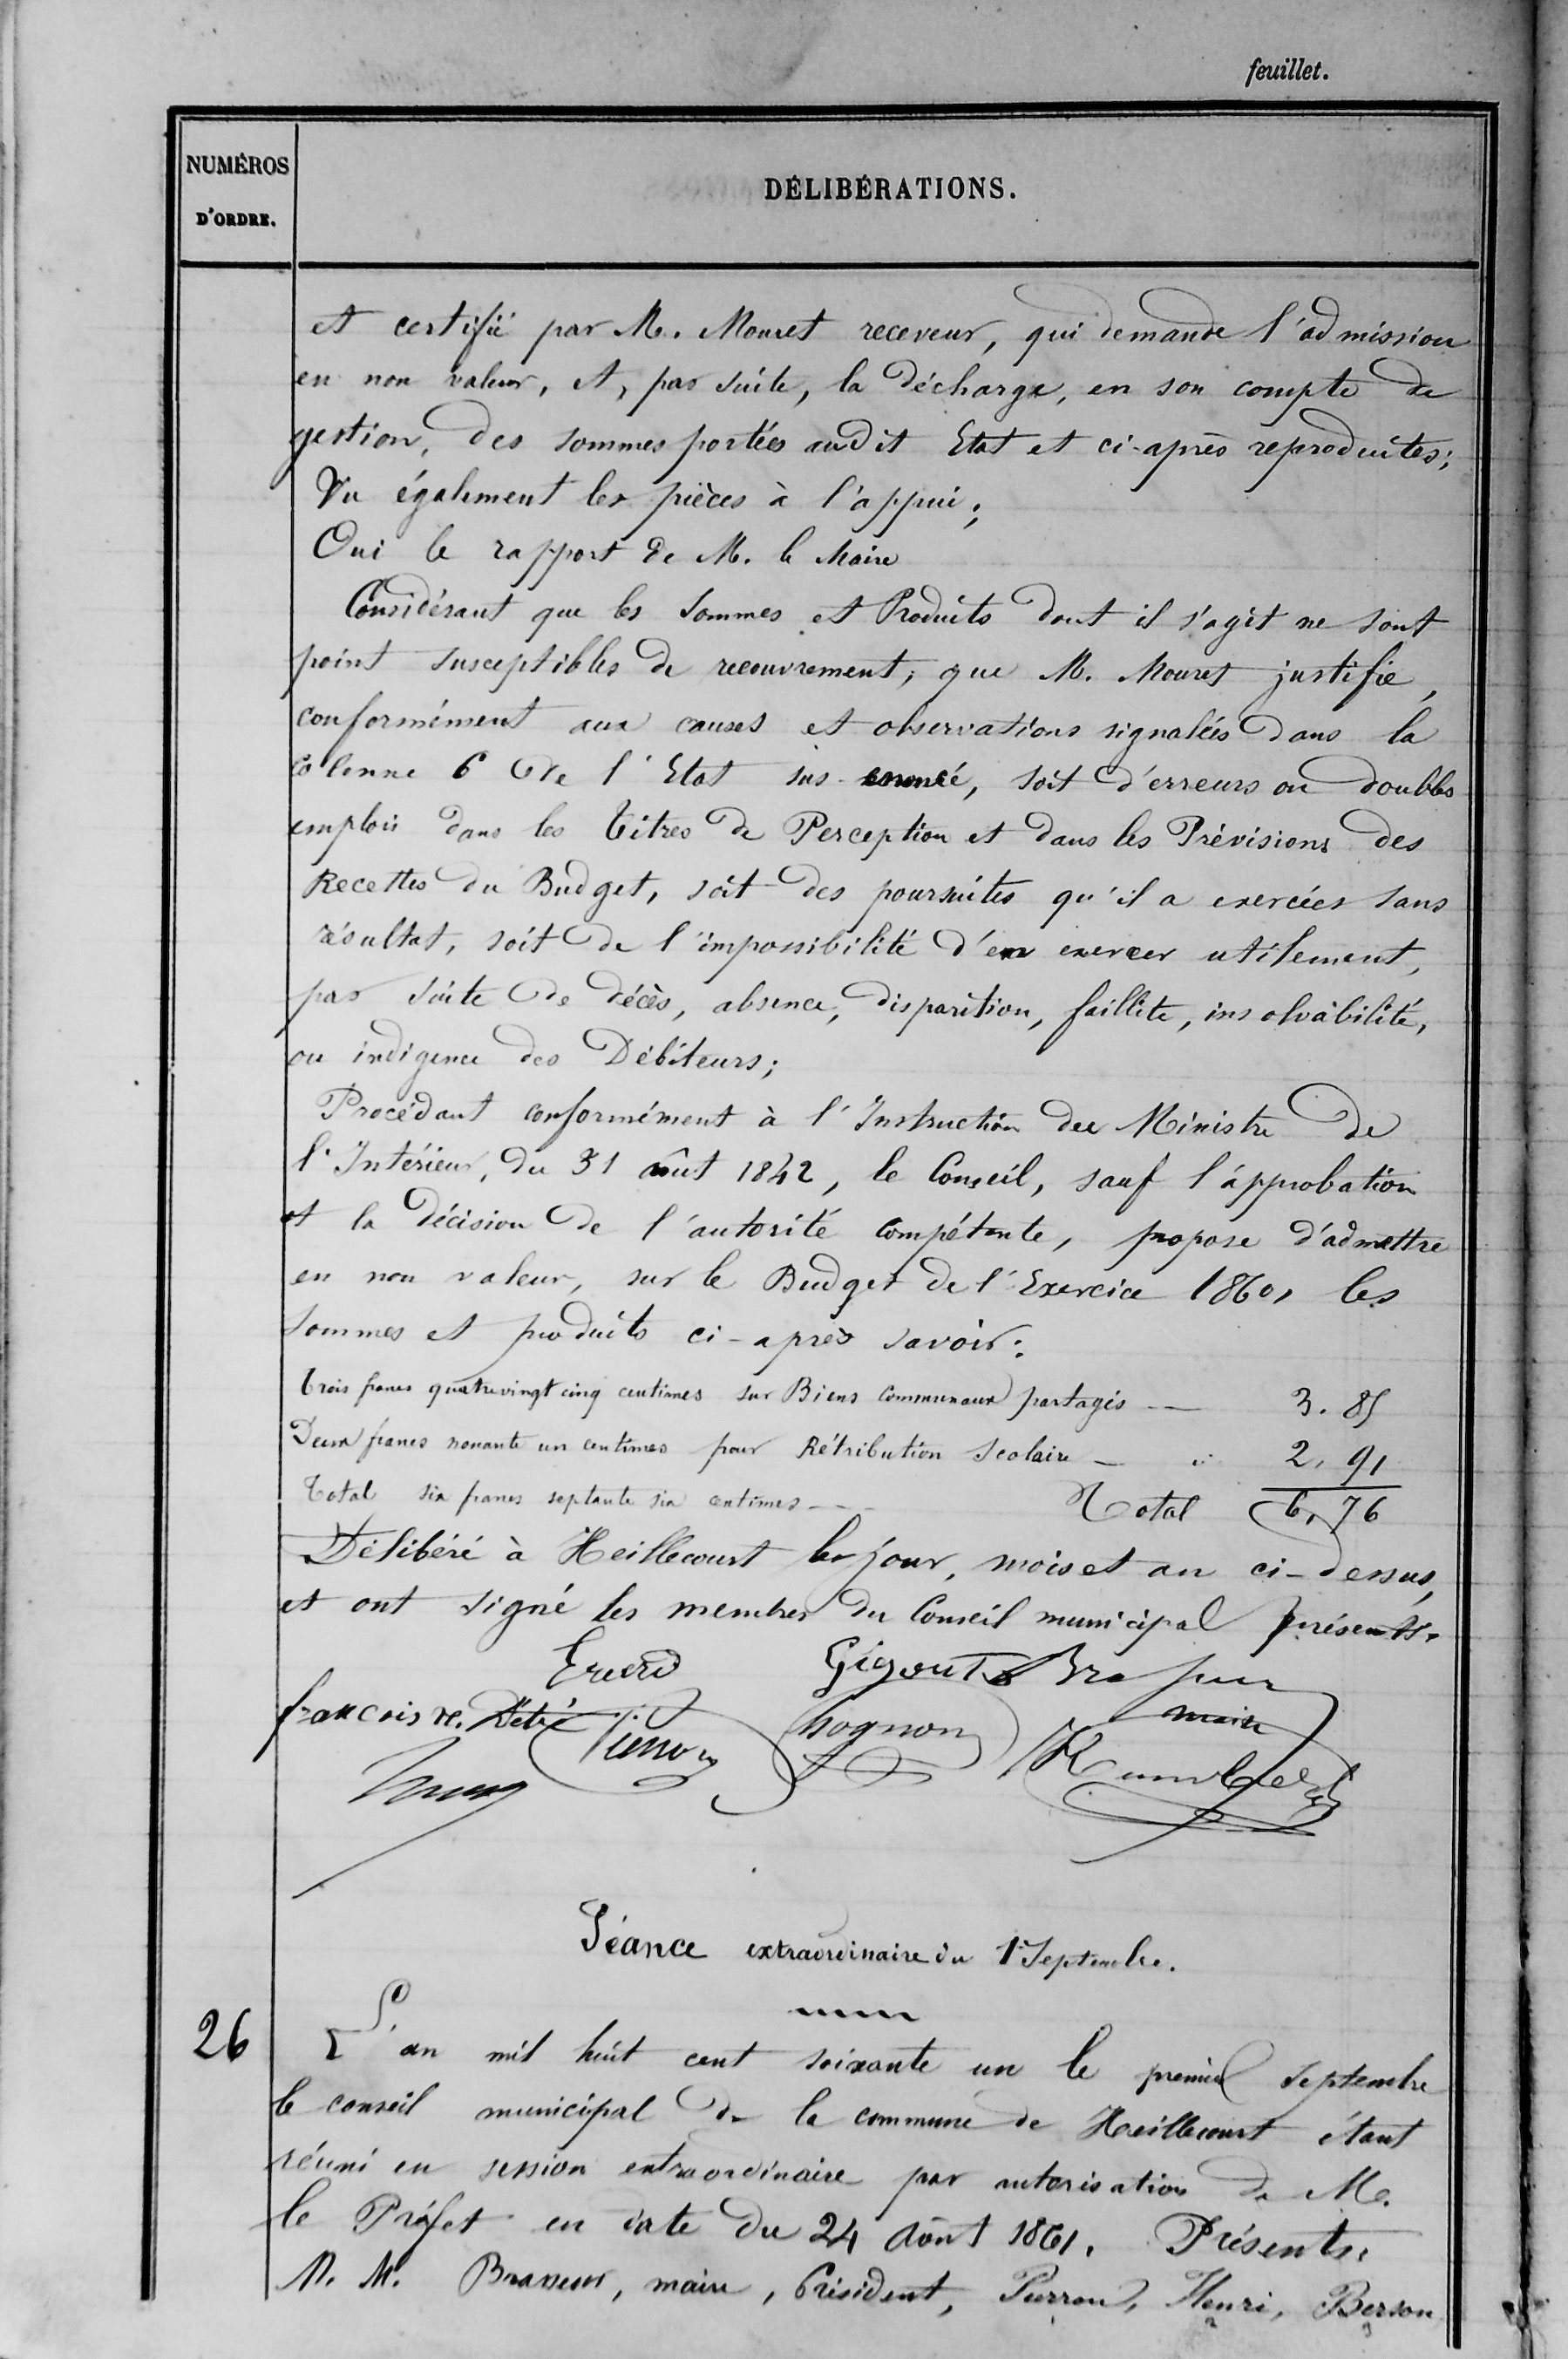 feuillet.
NUMÉROS
D'ORDRE.
DÉLIBÉRATIONS.
et certifié par M. Mouret receveur, qui demande l'admission
en non valeur, et, par suite, la décharge, en son compte de
gestion, des sommes portées audit Etat et ci-après reproduites;
Vu également les pièces à l'appui;
Oui le rapport de M. le Maire
Considérant que les sommes et Produits dont il s'agit ne sont
point susceptibles de recouvrement; que M. Mouret justifie,
conformément aux causes et observations signalées dans la
colonne 6 de l'Etat sus-énoncé, soit d'erreurs ou doubles
emplois dans les Titres de Perception et dans les Prévisions des
Recettes du Budget, soit des poursuites qu'il a exercées sans
résultat, soit de l'impossibilité d'en exercer utilement,
par suite de décès, absence, disparition, faillite, insolvabilité,
ou indigence des Débiteurs;
Procédant conformément à l'Instruction du Ministre de
l'Intérieur, du 31 août 1842, le Conseil, sauf l'approbation
et la décision de l'autorité compétente, propose d'admettre
en non valeur, sur le Budget de l'Exercice 1860, les
sommes et produits ci-après savoir:
Trois francs quatrevingt cinq centimes sur Biens Communaux partagés — 3. 85
Deux francs nonante un centimes pour Rétribution Scolaire — " 2. 91
Total six francs septante six centimes --- Total 6, 76
Délibéré à Heillecourt les jour, mois et an ci-dessus,
et ont signé les membres du Conseil municipal présents.
Gigout
françois
maire
Séance extraordinaire du 1er Septembre.
26
L'an mil huit cent soixante un le premier septembre
le conseil municipal de la commune de Heillecourt étant
réuni en session extraordinaire par autorisation de M.
le Préfet en date du 24 Août 1861. Présents:
M. M. Brasseur, maire, Président, Pierron, Henri, Berson